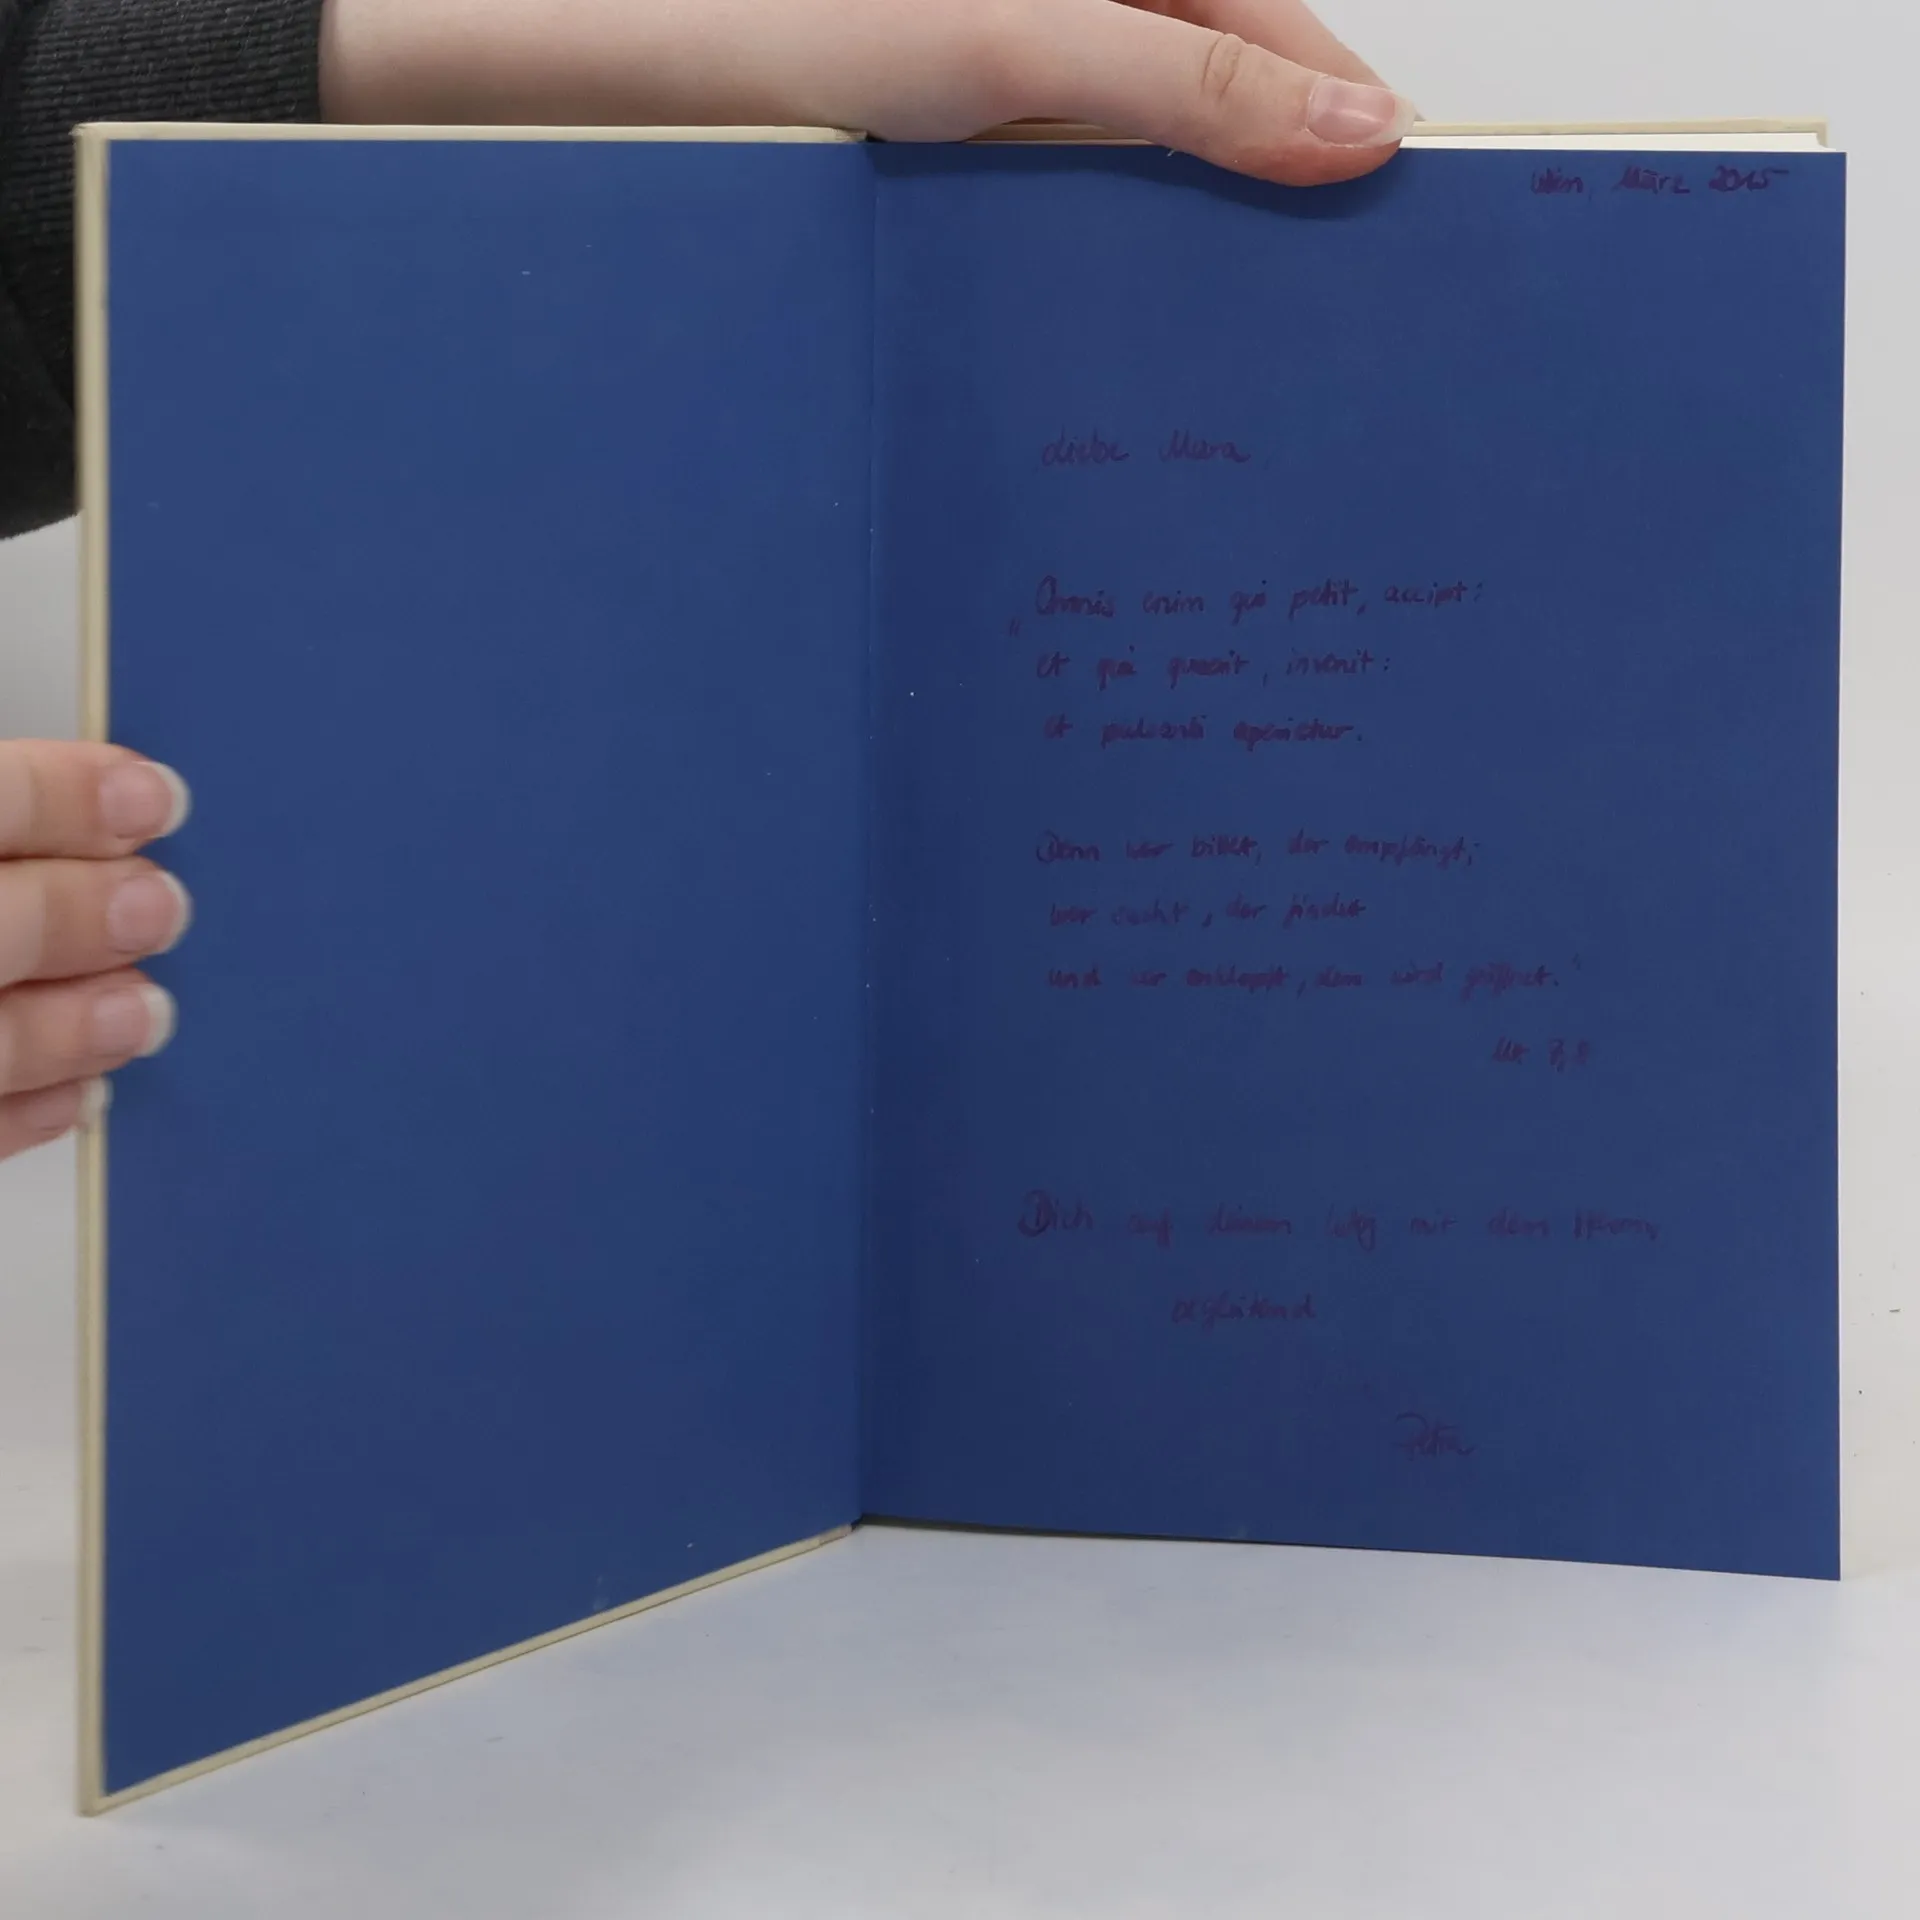 Wien, März 2015
Liebe Mara,
„Omnis enim qui petit, accipit:
et qui quaerit, invenit:
et pulsanti aperietur.
Denn wer bittet, der empfängt;
wer sucht, der findet
und wer anklopft, dem wird geöffnet.“
Mt 7, 8
Dich auf deinem Weg mit dem Herrn
begleitend
Petra